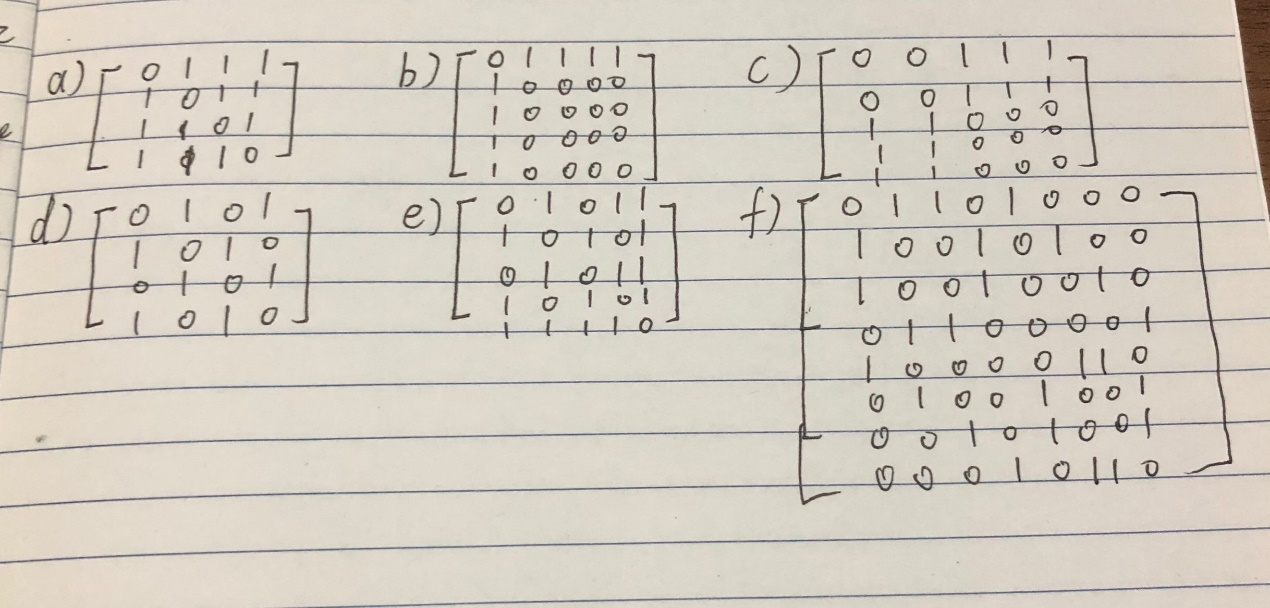 a) [ 0 1 1 1 ]
1 0 1 1
1 1 0 1
1 1 1 0
b) [ 0 1 1 1 1 ]
1 0 0 0 0
1 0 0 0 0
1 0 0 0 0
1 0 0 0 0
c) [ 0 0 1 1 1 ]
0 0 1 1 1
1 1 0 0 0
1 1 0 0 0
1 1 0 0 0
d) [ 0 1 0 1 ]
1 0 1 0
0 1 0 1
1 0 1 0
e) [ 0 1 0 1 1 ]
1 0 1 0 1
0 1 0 1 1
1 0 1 0 1
1 1 1 1 0
f) [ 0 1 1 0 1 0 0 0 ]
1 0 0 1 0 1 0 0
1 0 0 1 0 0 1 0
0 1 1 0 0 0 0 1
1 0 0 0 0 1 1 0
0 1 0 0 1 0 0 1
0 0 1 0 1 0 0 1
0 0 0 1 0 1 1 0